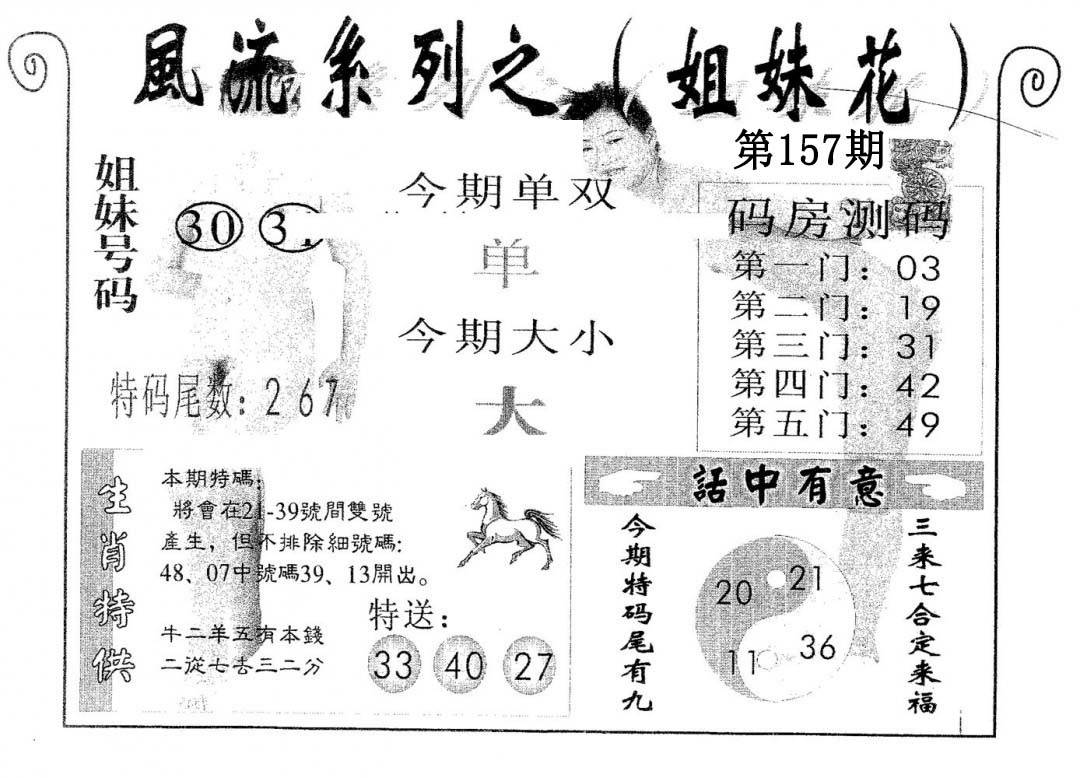 風流系列之（姐妹花）
第157期
姐妹号码
30
今期单双
单
今期大小
大
特码尾数：2 6 7
码房测码
第一门：03
第二门：19
第三门：31
第四门：42
第五门：49
生肖特供
本期特碼：
將會在21-39號間雙號
產生，但不排除細號碼：
48、07中號碼39、13開出。
牛二羊五有本錢
二從七去三二分
特送：
33 40 27
話中有意
今期特码尾有九
20 21
11 36
三来七合定来福